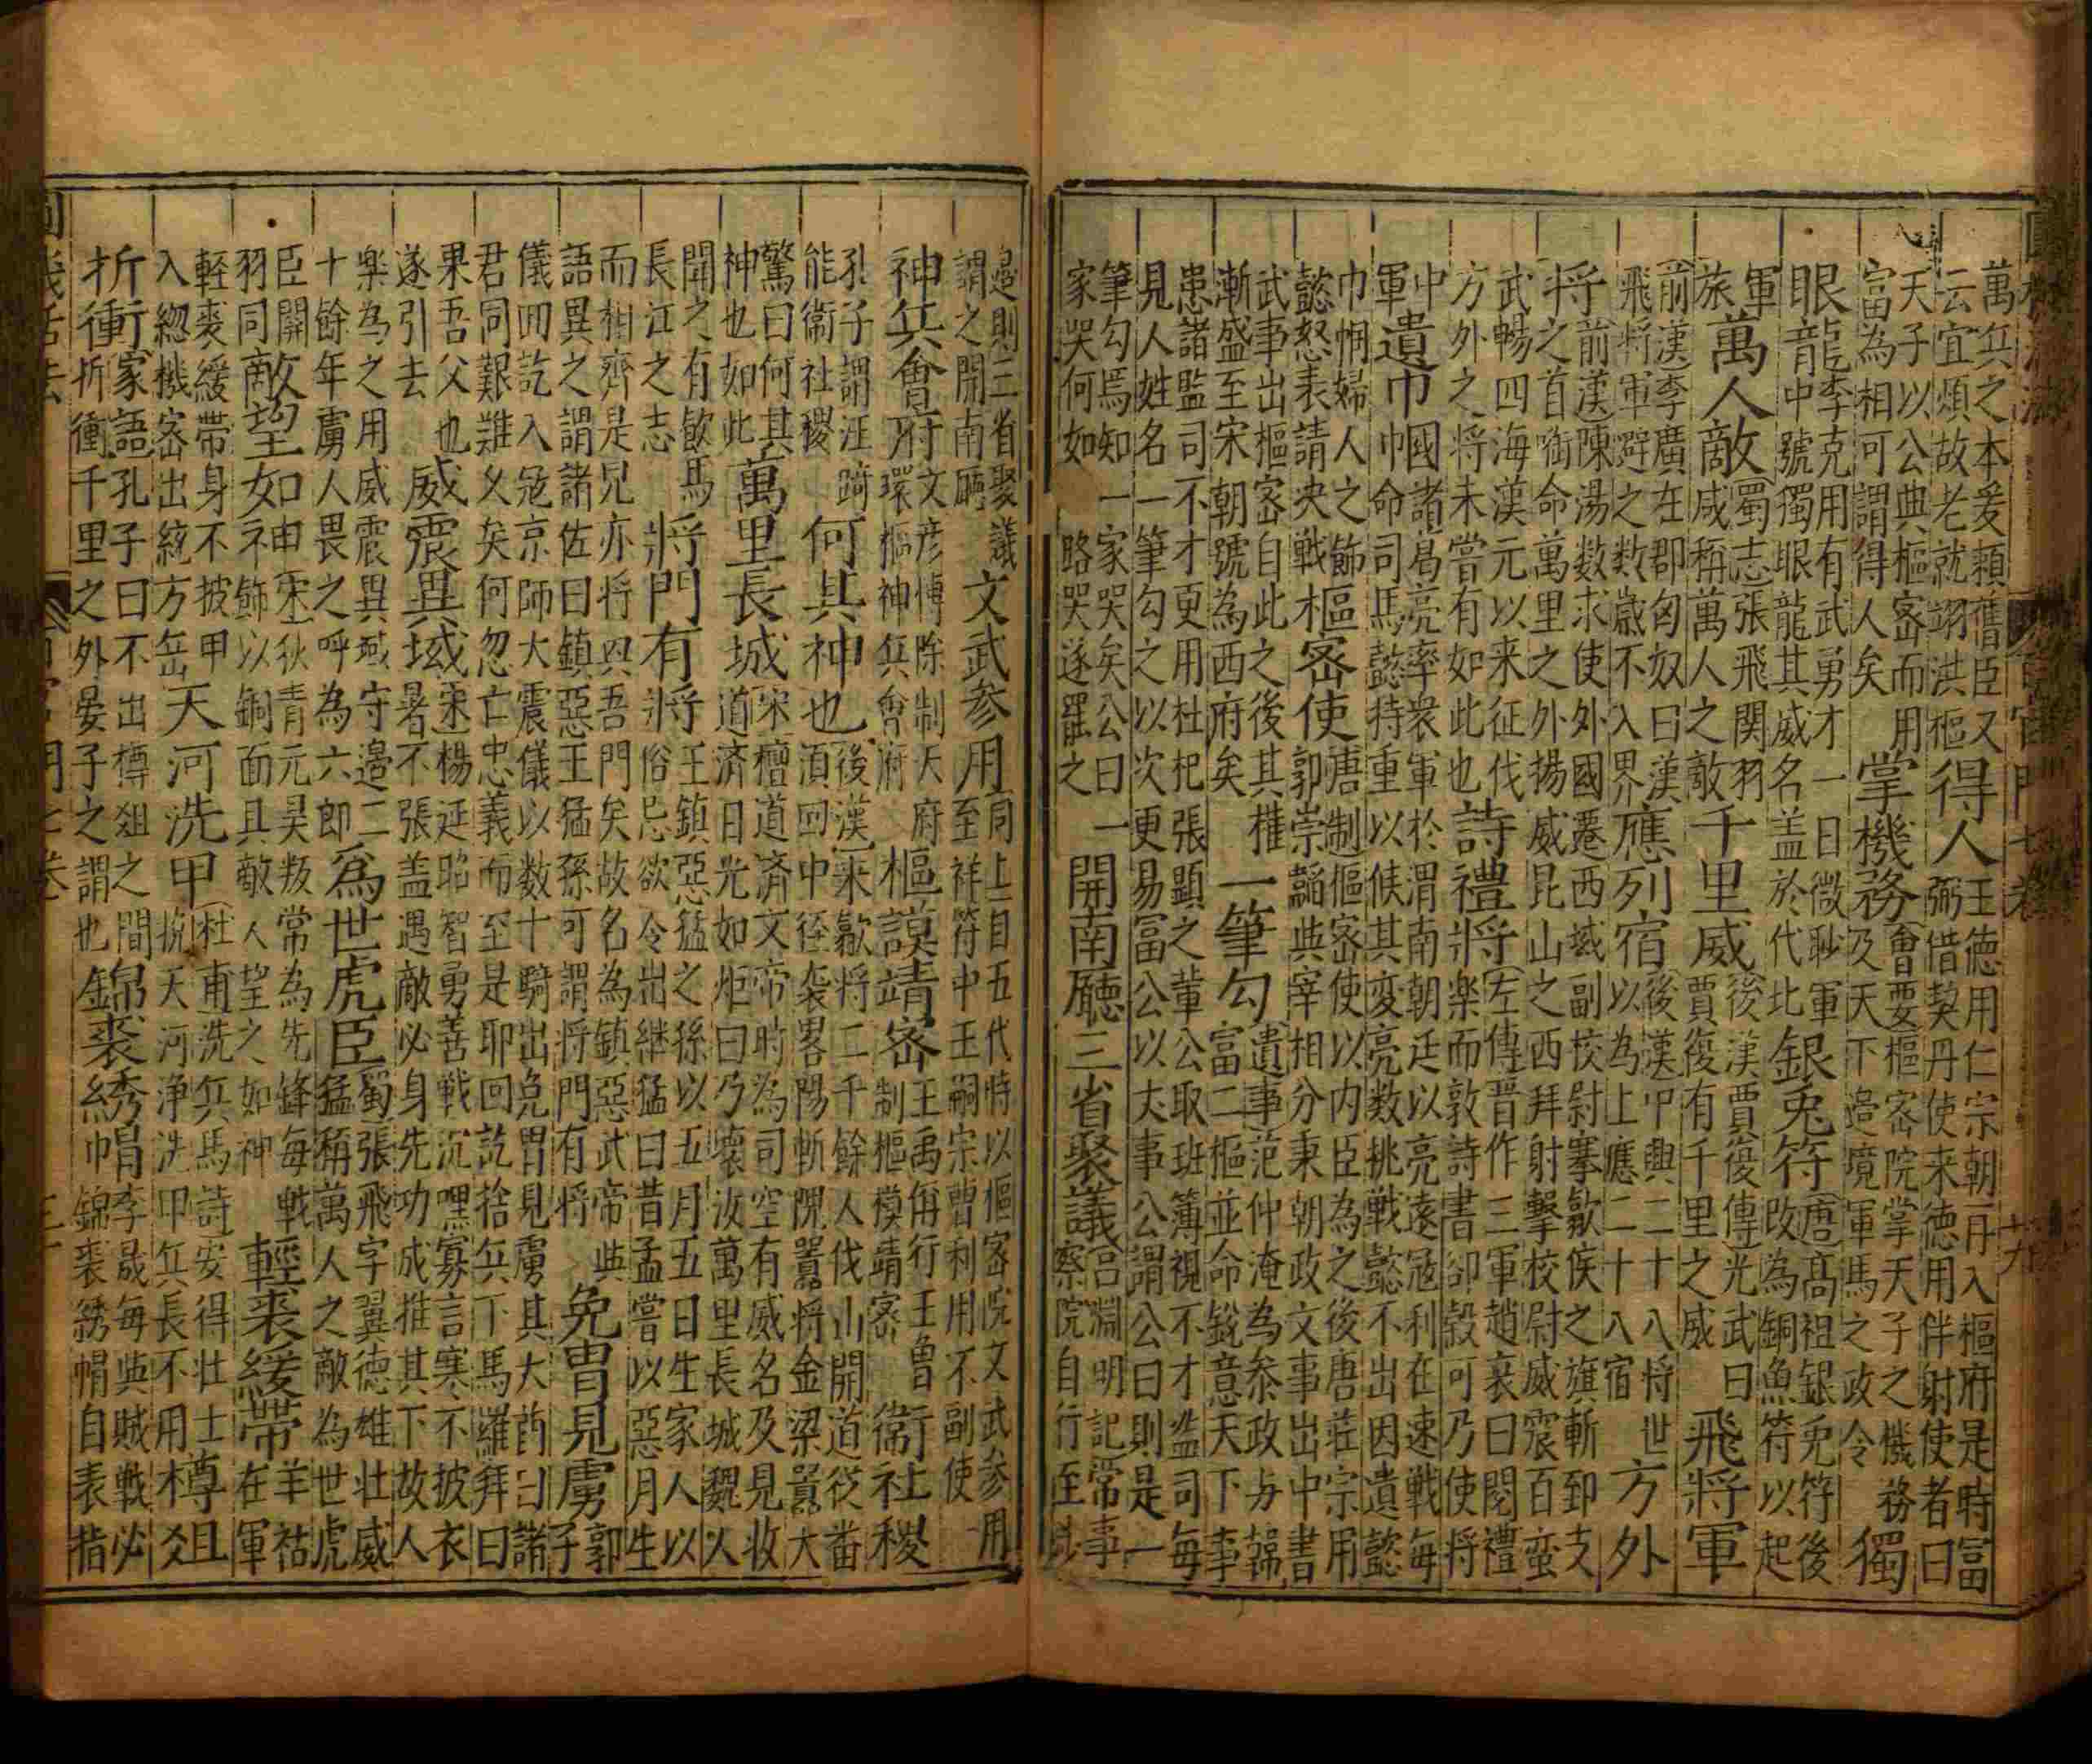 萬兵之本爰頼舊臣又
云宜頌故老就翊洪樞
得人
王德用仁宗朝再入樞府是時富
弼借契丹使来德用伴射使者曰
天子以公典樞宻而用
富為相可謂得人矣
掌機務
會要樞宻院掌天子之機務
及天下邉境軍馬之政令
獨
眼龍
李克用有武勇才一日微眇軍
中號獨眼龍其威名盖於代北
銀兎符
唐髙祖銀兎符後
改為銅魚符以起
軍
旅
萬人敵
蜀志張飛関羽
咸稱萬人之敵
千里威
後漢賈復傳光武曰
賈復有千里之威
飛將軍
前漢李廣在郡匈奴曰漢
飛將軍避之数歳不入界
應列宿
後漢中興二十八將世
以為上應二十八宿
方外
將
前漢陳湯数求使外國遷西域副校尉搴歙侯之旗斬郅支
之首啣命萬里之外揚威昆山之西拜射擊校尉威震百蛮
武暢四海漢元以来征伐
方外之將未嘗有如此也
詩禮將
左傳晋作三軍趙衰曰閱禮
樂而敦詩書卻縠可乃使將
中
軍
遺巾
國諸葛亮率衆軍於渭南朝廷以亮逺冦利在速戰毎
巾命司馬懿持重以候其変亮数挑戰懿不出因遺懿
巾帼婦人之飾
懿怒表請决戰
樞宻使
唐制樞宻使以内臣為之後唐荘宗用
郭崇韜典宰相分秉朝政文事出中書
武事出樞宻自此之後其權
漸盛至宋朝號為西府矣
一筆勾
遺事范仲淹為叅政与韓
富二樞並命銳意天下事
患諸監司不才更用杜杞張顕之輩公取班簿視不才监司毎
見人姓名一筆勾之以次更易富公以丈事公謂公曰則是一
筆勾焉知一家哭矣公曰一
家哭何如一路哭遂罷之
開南廳三省聚議
吕淵明記常事
察院自行至
邉則三省聚議
謂之開南廳
文武参用
同上自五代時以樞宻院文武参用
至祥符中王嗣宗曹利用不副使
神兵會府
文彦博除制天府
環樞神兵會府
樞謨靖宻
王禹偁行王魯
制樞模靖宻
衛社稷
孔子謂汪踦
能衛社稷
何其神也
後漢来歙將二千餘人伐山開道從畨
湏回中徑襲畧陽斬隗嚣將金梁嚣大
驚曰何其
神也如此
萬里長城
宋檀道済文帝時為司空有威名及見收
道済日光如炬曰乃壞汝萬里長城魏人
聞之有飲馬
長江之志
將門有將
王鎮惡猛之孫以五月五日生家人以
俗忌欲令出継猛曰昔孟嘗以惡月生
而相齊是兒亦將四吾門矣故名為鎮惡武帝典
語異之謂諸佐曰鎮惡王猛孫可謂將門有將
免胄見虜
郭
子
儀囬訖入冦京師大震儀以数十騎出免胄見虜其大酋曰諸
君同艱難乆矣何忽亡忠義而至是耶回訖捨兵下馬羅拜曰
果吾父也
遂引去
威震異域
宋楊延昭智勇善戰沉嘿寡言寒不披衣
暑不張盖遇敵必身先功成推其下故人
楽為之用威震異域守邉二
十餘年虜人畏之呼為六郎
為世虎臣
蜀張飛字翼德雄壮威
猛稱萬人之敵為世虎
臣開
羽同
敵望如神
宋狄青元昊叛常為先鋒毎戰
飾以銅面具敵人望之如神
輕裘緩帶
羊祜
在軍
輕裘緩帶身不披甲
入緫機宻出統方岳
天河洗甲
杜甫洗兵馬詩安得壮士
挽天河浄洗甲兵長不用
樽俎
折衝
家語孔子曰不出樽爼之間
折衝千里之外晏子之謂也
錦裘綉帽
李晟毎與賊戰必
錦裘綉帽自表指